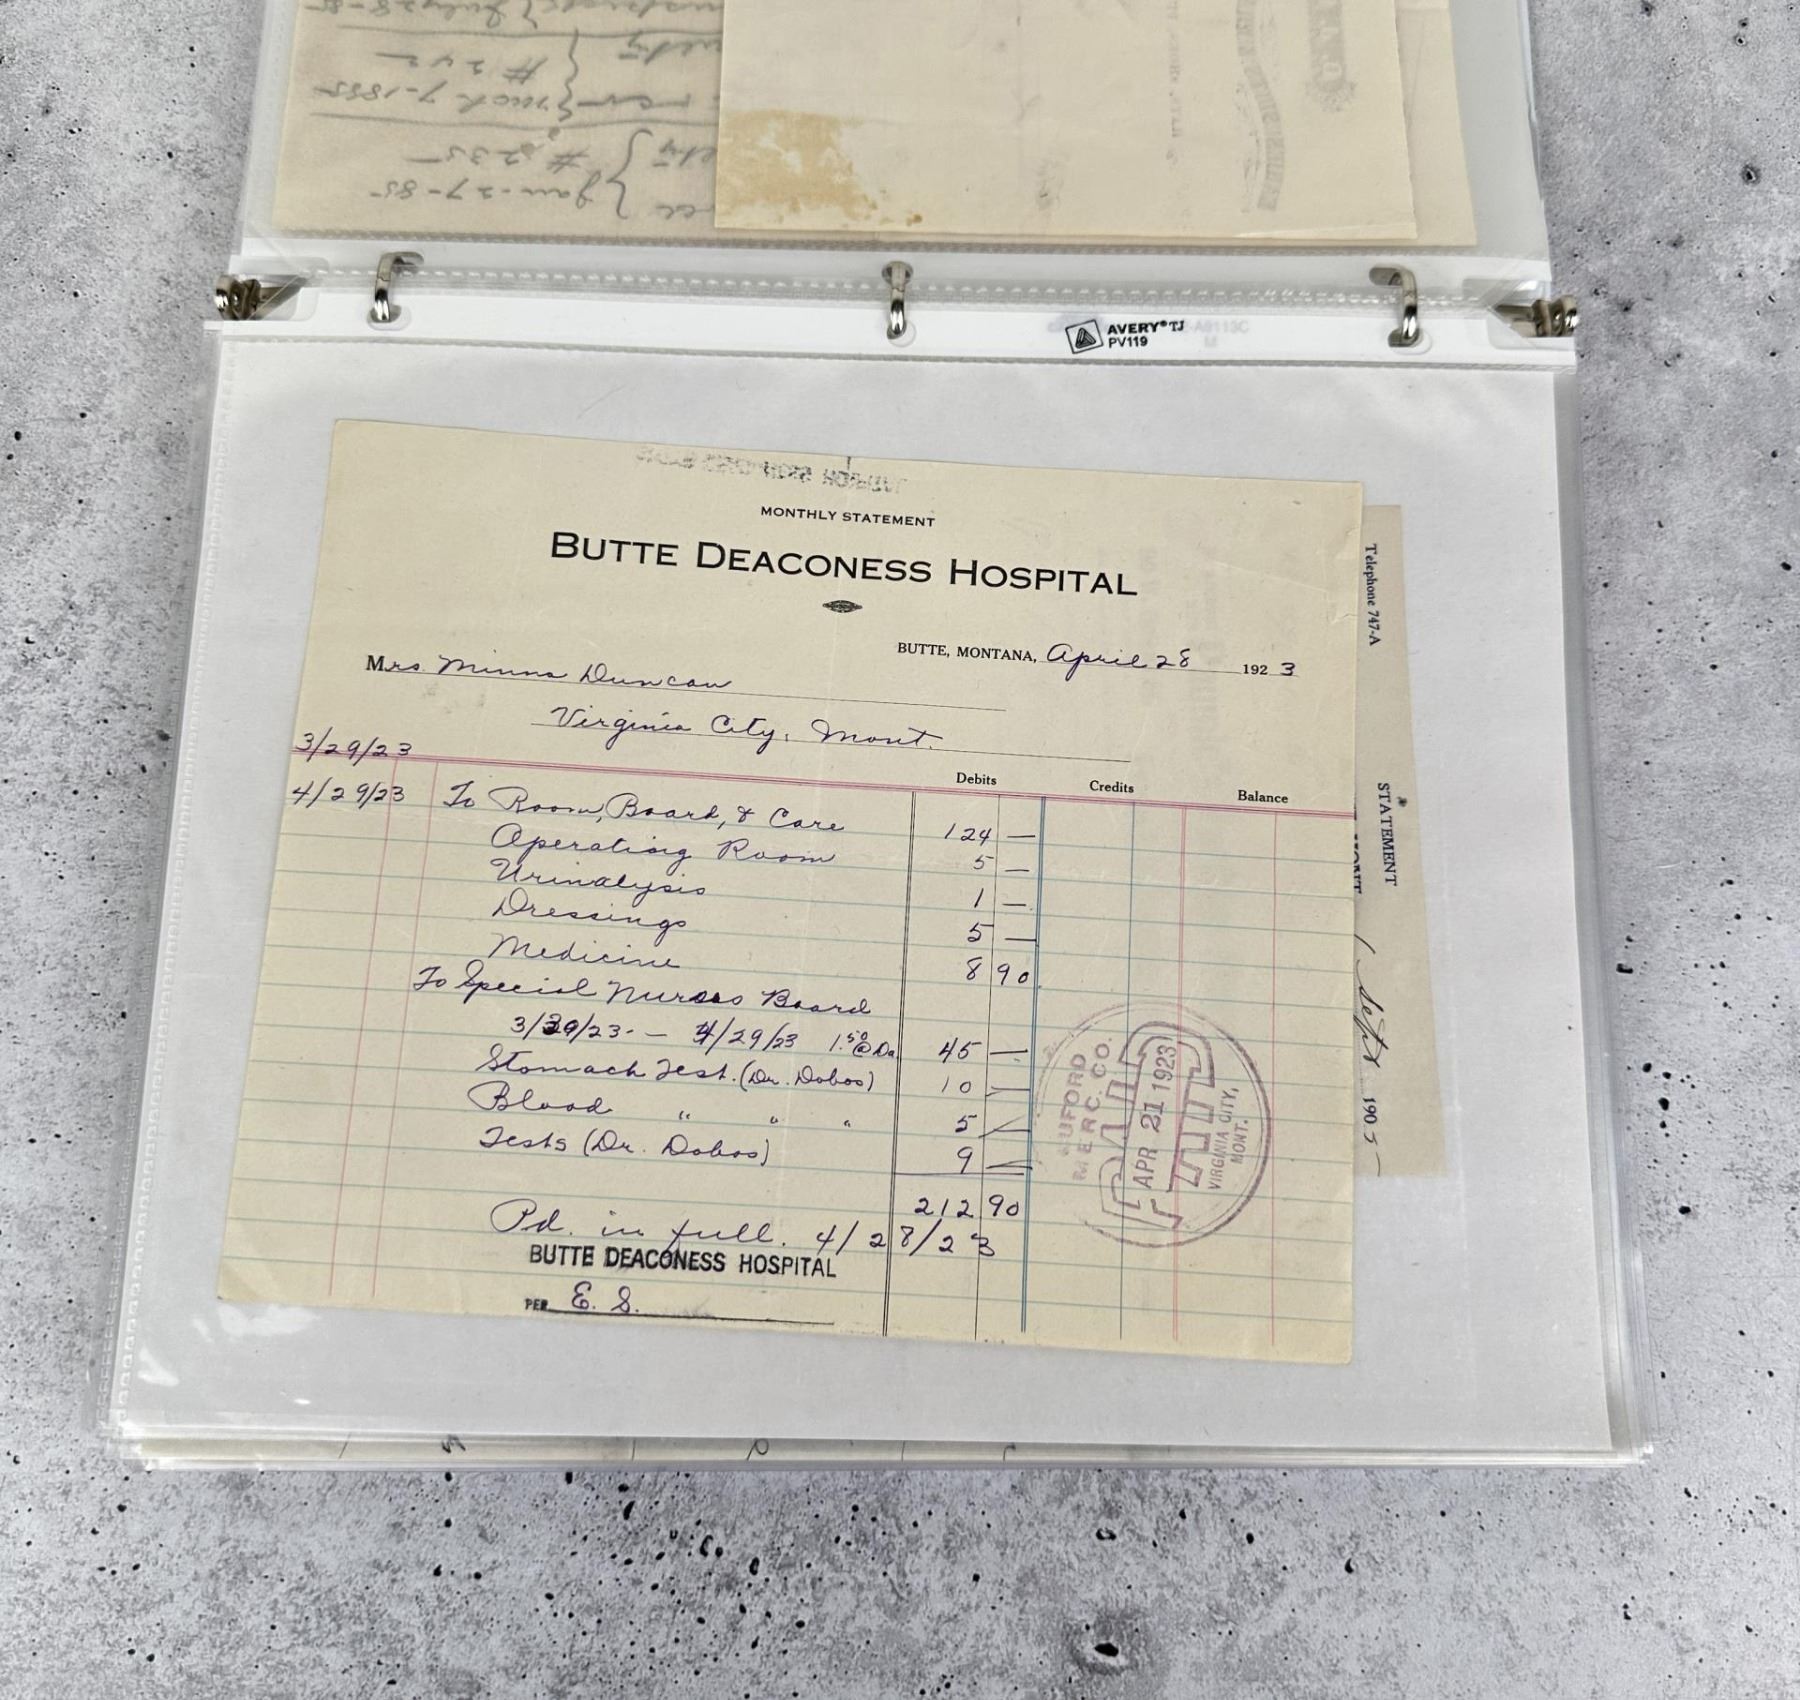 Jan-27-85
# 235-
mch 7-1885
# 242
July 28-85
AVERY® TJ
PV119
MONTHLY STATEMENT
BUTTE DEACONESS HOSPITAL
BUTTE, MONTANA, April 28 1923
Mrs. Minna Duncan
Virginia City, Mont.
3/29/23
Debits Credits Balance
4/29/23 To Room, Board, & Care 124 —
Operating Room 5 —
Urinalysis 1 —
Dressings 5 —
Medicine 8 90
To Special Nurses Board
3/30/23 - — 4/29/23 1.50 @ Da 45 —
Stomach Test. (Dr. Dobos) 10 —
Blood " " " 5 —
Tests (Dr. Dobos) 9 —
212 90
Pd. in full. 4/28/23
BUTTE DEACONESS HOSPITAL
PER E. S.
BUFORD
MERC. CO.
PAID
APR 21 1923
VIRGINIA CITY,
MONT.
Telephone 747-A
STATEMENT
Sept 1905